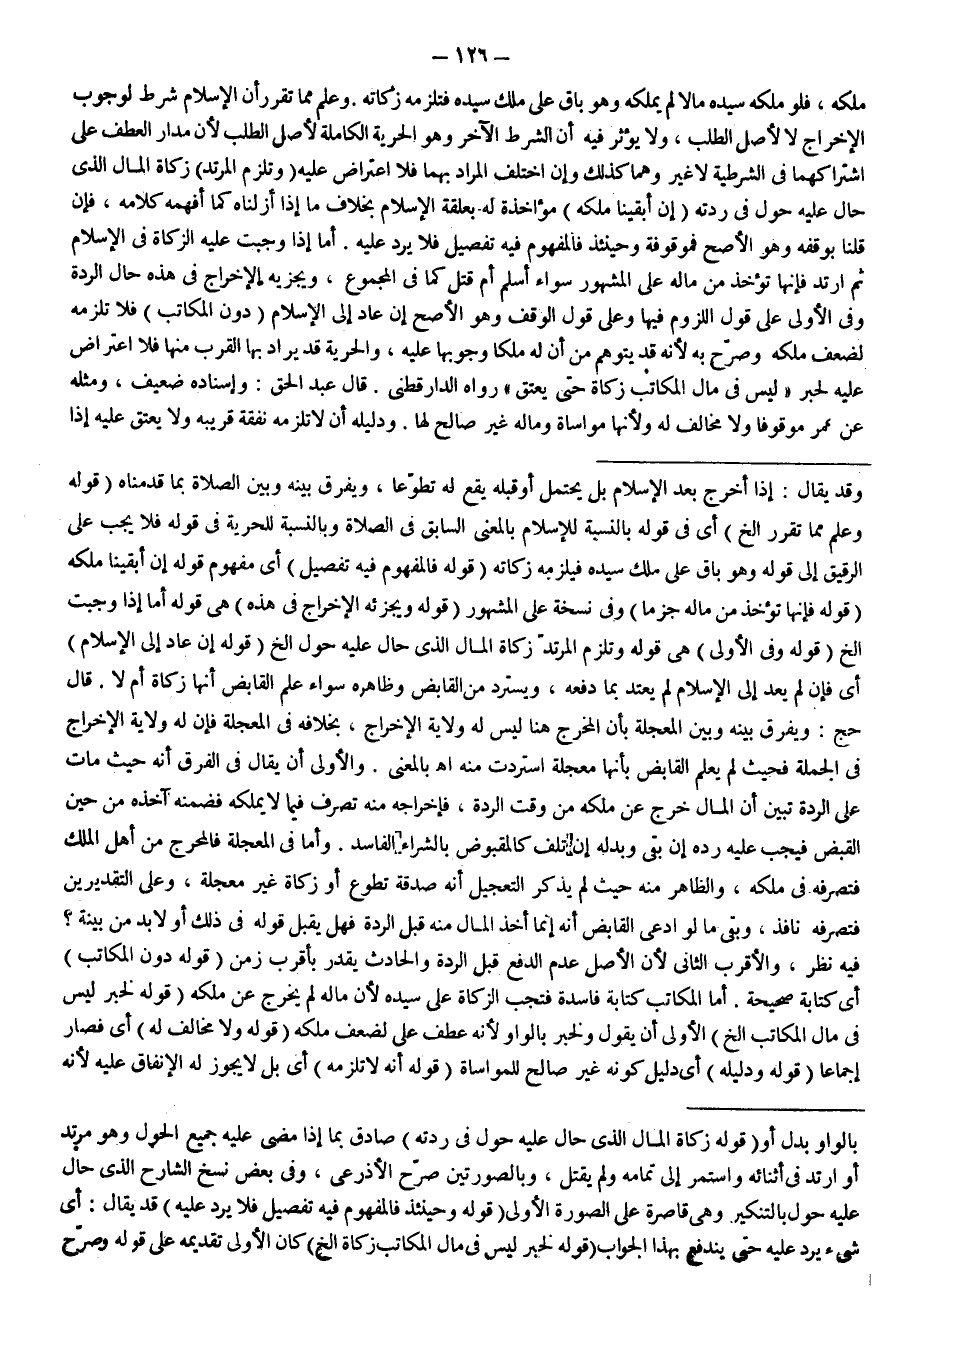 – ١٢٦ –
ملكه ، فلو ملكه سيده مالا لم يملكه وهو باق على ملك سيده فتلزمه زكاته . وعلم مما تقرر أن الإسلام شرط لوجوب
الإخراج لا لأصل الطلب ، ولا يؤثر فيه أن الشرط الآخر وهو الحرية الكاملة لأصل الطلب لأن مدار العطف على
اشتراكهما فى الشرطية لاغير وهما كذلك وإن اختلف المراد بهما فلا اعتراض عليه ( وتلزم المرتد ) زكاة المال الذى
حال عليه حول فى ردته ( إن أبقينا ملكه ) مؤاخذة له بعلقة الإسلام بخلاف ما إذا أزلناه كما أفهمه كلامه ، فإن
قلنا بوقفه وهو الأصح فموقوفة وحينئذ فالمفهوم فيه تفصيل فلا يرد عليه . أما إذا وجبت عليه الزكاة فى الإسلام
ثم ارتد فإنها تؤخذ من ماله على المشهور سواء أسلم أم قتل كما فى المجموع ، ويجزيه الإخراج فى هذه حال الردة
وفى الأولى على قول اللزوم فيها وعلى قول الوقف وهو الأصح إن عاد إلى الإسلام ( دون المكاتب ) فلا تلزمه
لضعف ملكه وصرّح به لأنه قد يتوهم من أن له ملكا وجوبها عليه ، والحرية قد يراد بها القرب منها فلا اعتراض
عليه لخبر « ليس فى مال المكاتب زكاة حتى يعتق » رواه الدارقطنى . قال عبد الحق : وإسناده ضعيف ، ومثله
عن عمر موقوفا ولا مخالف له ولأنها مواساة وماله غير صالح لها . ودليله أن لاتلزمه نفقة قريبه ولا يعتق عليه إذا
وقد يقال : إذا أخرج بعد الإسلام بل يحتمل أوقبله يقع له تطوّعا ، ويفرق بينه وبين الصلاة بما قدمناه ( قوله
وعلم مما تقرر الخ ) أى فى قوله بالنسبة للإسلام بالمعنى السابق فى الصلاة وبالنسبة للحرية فى قوله فلا يجب على
الرقيق إلى قوله وهو باق على ملك سيده فيلزمه زكاته ( قوله فالمفهوم فيه تفصيل ) أى مفهوم قوله إن أبقينا ملكه
( قوله فإنها تؤخذ من ماله جزما ) وفى نسخة على المشهور ( قوله ويجزئه الإخراج فى هذه ) هى قوله أما إذا وجبت
الخ ( قوله وفى الأولى ) هى قوله وتلزم المرتدّ زكاة المال الذى حال عليه حول الخ ( قوله إن عاد إلى الإسلام )
أى فإن لم يعد إلى الإسلام لم يعتد بما دفعه ، ويسترد من القابض وظاهره سواء علم القابض أنها زكاة أم لا . قال
حج : ويفرق بينه وبين المعجلة بأن المخرج هنا ليس له ولاية الإخراج ، بخلافه فى المعجلة فإن له ولاية الإخراج
فى الجملة فحيث لم يعلم القابض بأنها معجلة استردت منه اه بالمعنى . والأولى أن يقال فى الفرق أنه حيث مات
على الردة تبين أن المال خرج عن ملكه من وقت الردة ، فإخراجه منه تصرف فيما لايملكه فضمنه آخذه من حين
القبض فيجب عليه رده إن بقى وبدله إن تلف كالمقبوض بالشراء الفاسد . وأما فى المعجلة فالمخرج من أهل الملك
فتصرفه فى ملكه ، والظاهر منه حيث لم يذكر التعجيل أنه صدقة تطوع أو زكاة غير معجلة ، وعلى التقديرين
فتصرفه نافذ ، وبقى ما لو ادعى القابض أنه إنما أخذ المال منه قبل الردة فهل يقبل قوله فى ذلك أو لابد من بينة ؟
فيه نظر ، والأقرب الثانى لأن الأصل عدم الدفع قبل الردة والحادث يقدر بأقرب زمن ( قوله دون المكاتب )
أى كتابة صحيحة . أما المكاتب كتابة فاسدة فتجب الزكاة على سيده لأن ماله لم يخرج عن ملكه ( قوله لخبر ليس
فى مال المكاتب الخ ) الأولى أن يقول ولخبر بالواو لأنه عطف على لضعف ملكه ( قوله ولا مخالف له ) أى فصار
إجماعا ( قوله ودليله ) أى دليل كونه غير صالح للمواساة ( قوله أنه لاتلزمه ) أى بل لايجوز له الإنفاق عليه لأنه
بالواو بدل أو ( قوله زكاة المال الذى حال عليه حول فى ردته ) صادق بما إذا مضى عليه جميع الحول وهو مرتد
أو ارتد فى أثنائه واستمر إلى تمامه ولم يقتل ، وبالصورتين صرّح الأذرعى ، وفى بعض نسخ الشارح الذى حال
عليه حول بالتنكير وهى قاصرة على الصورة الأولى ( قوله وحينئذ فالمفهوم فيه تفصيل فلا يرد عليه ) قد يقال : أى
شىء يرد عليه حتى يندفع بهذا الجواب ( قوله لخبر ليس فى مال المكاتب زكاة الخ ) كان الأولى تقديمه على قوله وصرّح